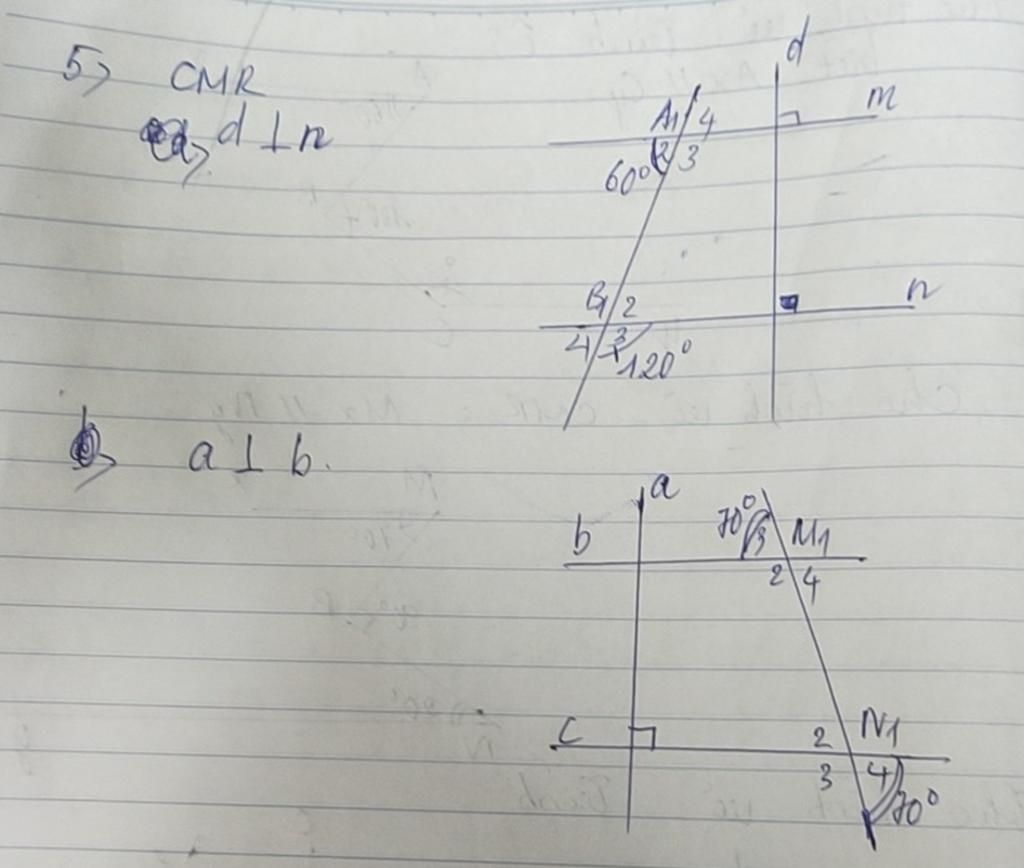 5) CMR
a) d ⊥ n
d
m
A1 4
2 3
60°
n
B1 2
4 3
120°
b) a ⊥ b.
a
70°
b
3 M1
2 4
c
2 N1
3 4
70°